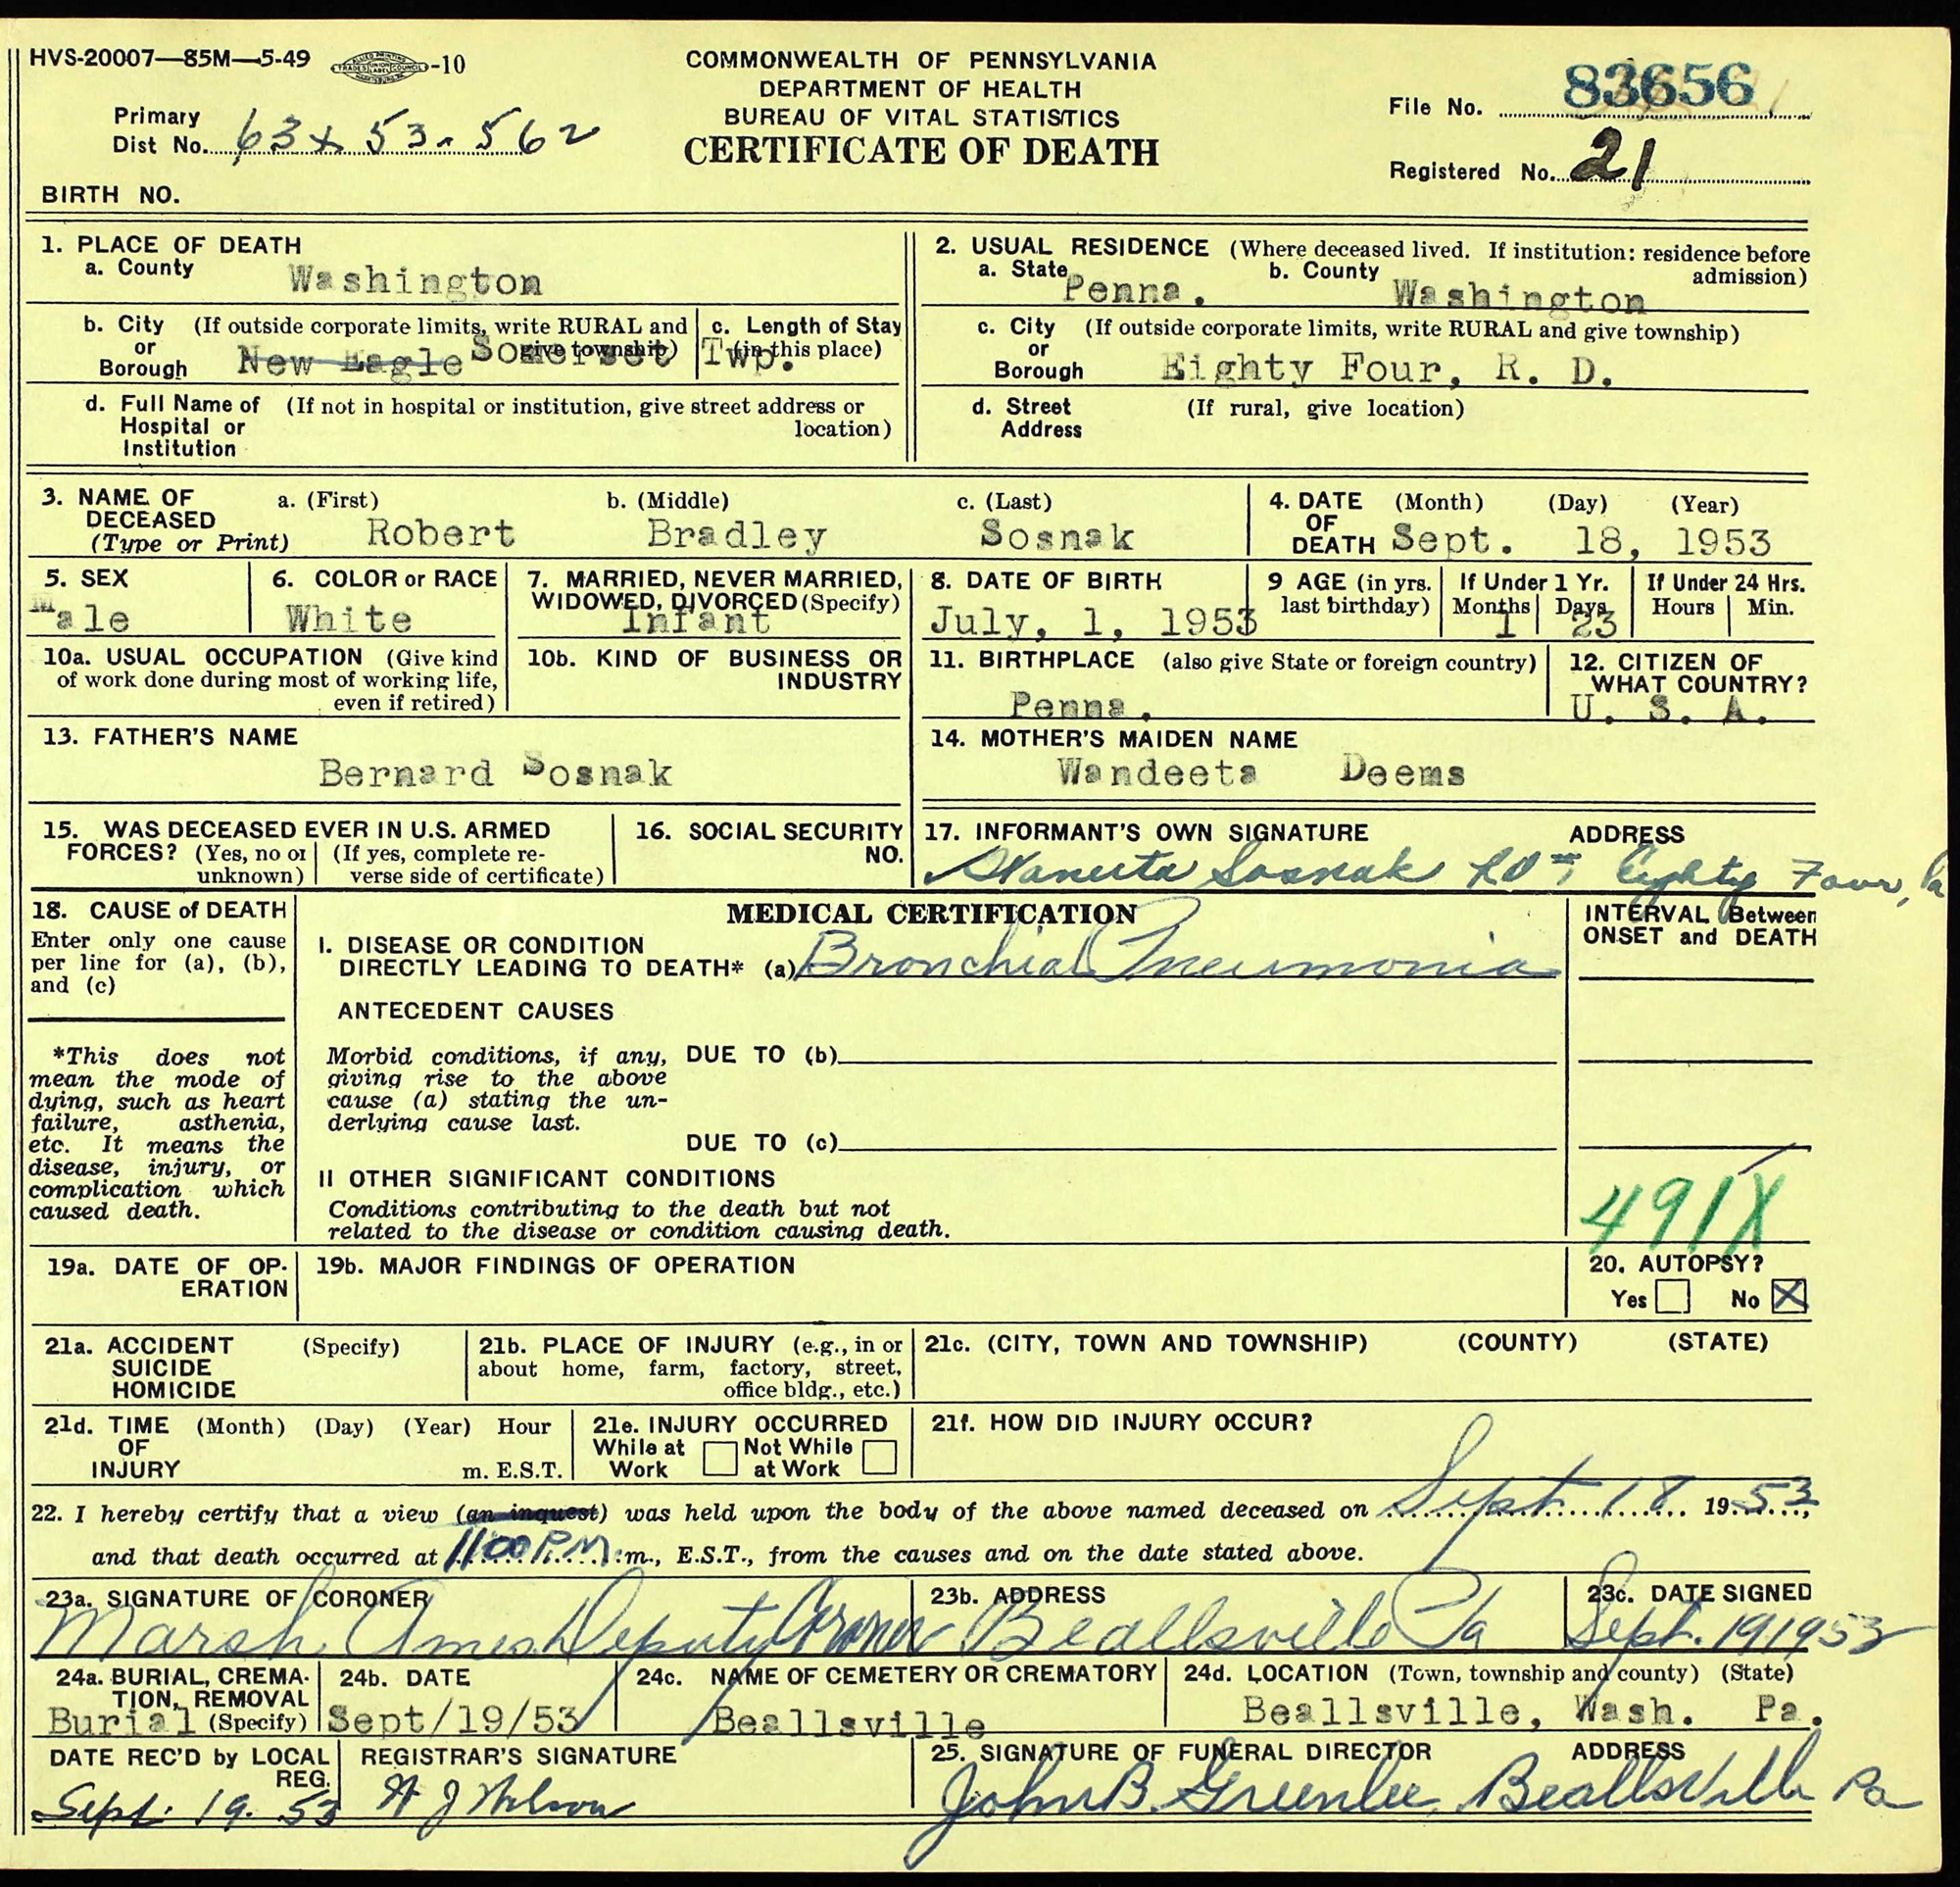 HVS-20007—85M—5-49 -10
COMMONWEALTH OF PENNSYLVANIA
DEPARTMENT OF HEALTH
BUREAU OF VITAL STATISTICS
CERTIFICATE OF DEATH
Primary
Dist No. 63x 53-562
BIRTH NO.
File No. 83656
Registered No. 21
1. PLACE OF DEATH
a. County Washington
b. City (If outside corporate limits, write RURAL and
or give township)
Borough New Eagle Somerset Twp.
c. Length of Stay
(in this place)
d. Full Name of (If not in hospital or institution, give street address or
Hospital or location)
Institution
2. USUAL RESIDENCE (Where deceased lived. If institution: residence before
admission)
a. State Penna. b. County Washington
c. City (If outside corporate limits, write RURAL and give township)
or
Borough Eighty Four, R. D.
d. Street (If rural, give location)
Address
3. NAME OF a. (First) b. (Middle) c. (Last)
DECEASED
(Type or Print) Robert Bradley Sosnak
4. DATE (Month) (Day) (Year)
OF
DEATH Sept. 18, 1953
5. SEX
Male
6. COLOR or RACE
White
7. MARRIED, NEVER MARRIED,
WIDOWED, DIVORCED (Specify)
Infant
8. DATE OF BIRTH
July, 1, 1953
9 AGE (in yrs.
last birthday)
If Under 1 Yr.
Months Days
1 23
If Under 24 Hrs.
Hours Min.
10a. USUAL OCCUPATION (Give kind
of work done during most of working life,
even if retired)
10b. KIND OF BUSINESS OR
INDUSTRY
11. BIRTHPLACE (also give State or foreign country)
Penna.
12. CITIZEN OF
WHAT COUNTRY?
U. S. A.
13. FATHER'S NAME
Bernard Sosnak
14. MOTHER'S MAIDEN NAME
Wandeeta Deems
15. WAS DECEASED EVER IN U.S. ARMED
FORCES? (Yes, no or (If yes, complete re-
unknown) verse side of certificate)
16. SOCIAL SECURITY
NO.
17. INFORMANT'S OWN SIGNATURE ADDRESS
Sosnak Eighty Four, Pa
18. CAUSE of DEATH
Enter only one cause
per line for (a), (b),
and (c)
*This does not
mean the mode of
dying, such as heart
failure, asthenia,
etc. It means the
disease, injury, or
complication which
caused death.
MEDICAL CERTIFICATION
I. DISEASE OR CONDITION
DIRECTLY LEADING TO DEATH* (a) Bronchial Pneumonia
ANTECEDENT CAUSES
Morbid conditions, if any, DUE TO (b)
giving rise to the above
cause (a) stating the un-
derlying cause last.
DUE TO (c)
II OTHER SIGNIFICANT CONDITIONS
Conditions contributing to the death but not
related to the disease or condition causing death.
INTERVAL Between
ONSET and DEATH
491X
19a. DATE OF OP-
ERATION
19b. MAJOR FINDINGS OF OPERATION
20. AUTOPSY?
Yes No X
21a. ACCIDENT (Specify)
SUICIDE
HOMICIDE
21b. PLACE OF INJURY (e.g., in or
about home, farm, factory, street,
office bldg., etc.)
21c. (CITY, TOWN AND TOWNSHIP) (COUNTY) (STATE)
21d. TIME (Month) (Day) (Year) Hour
OF
INJURY m. E.S.T.
21e. INJURY OCCURRED
While at Not While
Work at Work
21f. HOW DID INJURY OCCUR?
22. I hereby certify that a view (an inquest) was held upon the body of the above named deceased on Sept. 18 1953,
and that death occurred at 11:00 P.M. m., E.S.T., from the causes and on the date stated above.
23a. SIGNATURE OF CORONER
Marsh Ames Deputy Coroner
23b. ADDRESS
Beallsville Pa
23c. DATE SIGNED
Sept. 19 1953
24a. BURIAL, CREMA-
TION, REMOVAL
Burial (Specify)
24b. DATE
Sept/19/53
24c. NAME OF CEMETERY OR CREMATORY
Beallsville
24d. LOCATION (Town, township and county) (State)
Beallsville, Wash. Pa.
DATE REC'D by LOCAL
REG.
Sept. 19. 53
REGISTRAR'S SIGNATURE
25. SIGNATURE OF FUNERAL DIRECTOR ADDRESS
John B. Greenlee, Beallsville Pa